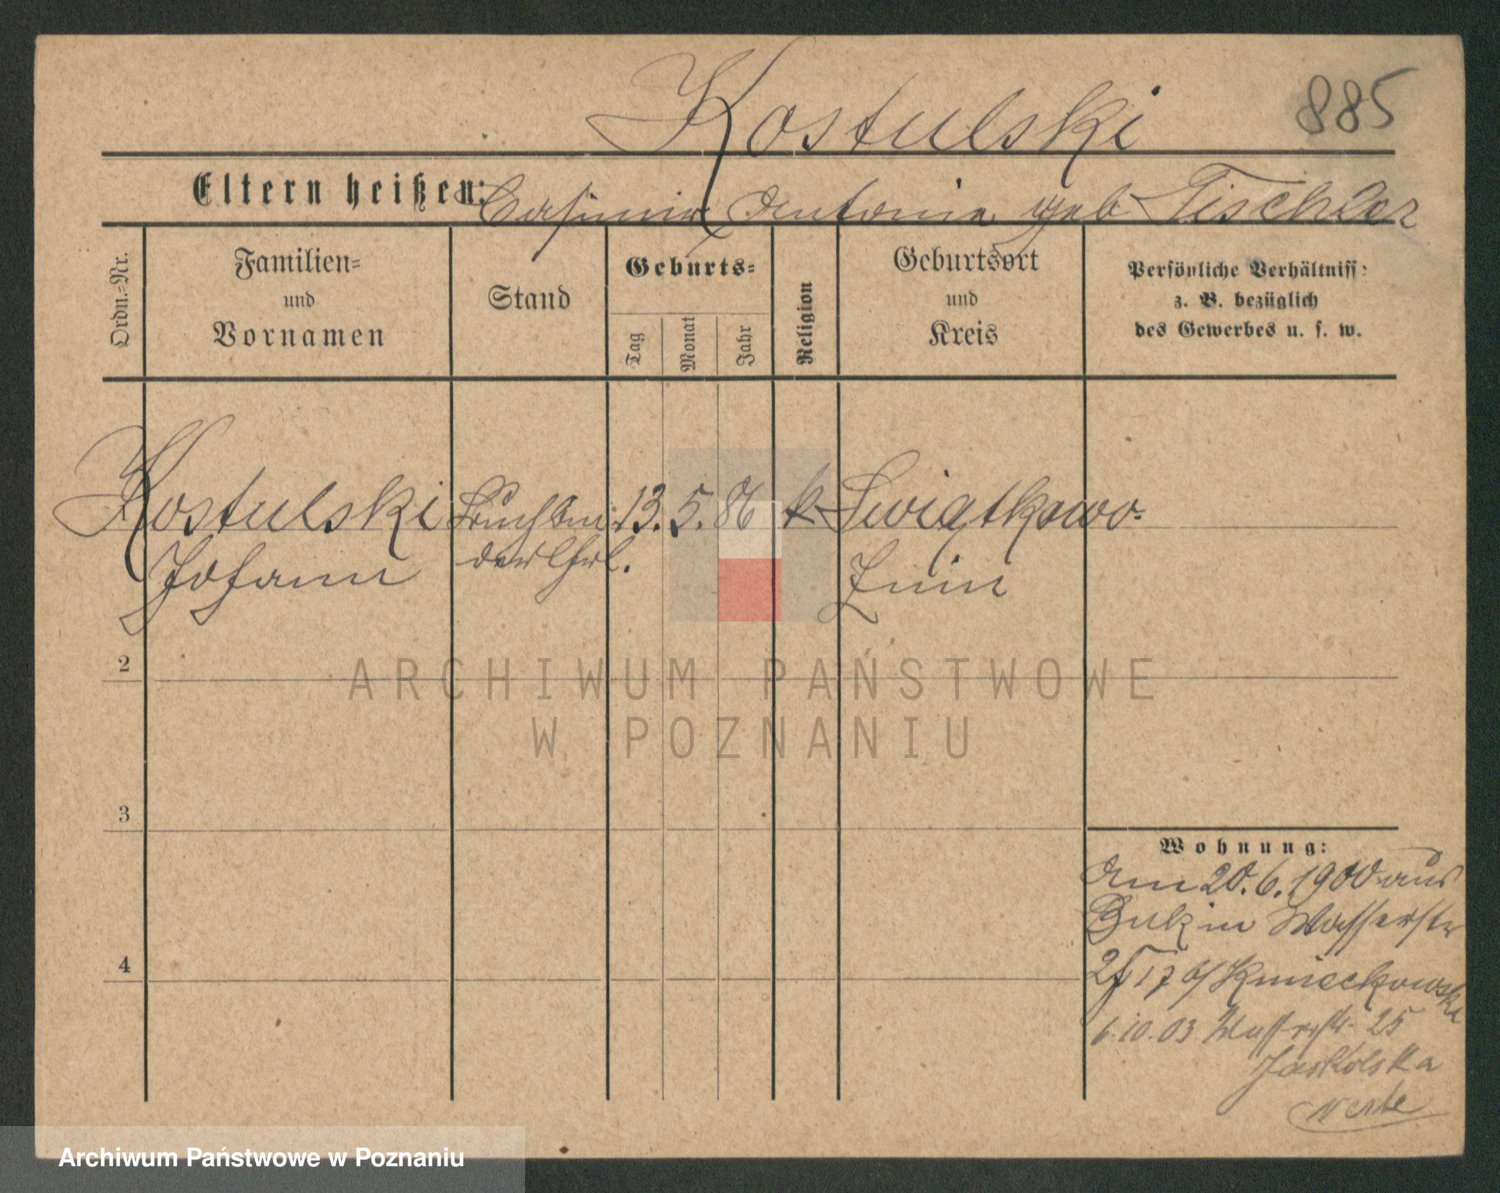 Kostulski 885
Eltern heißen: Casimir Antonie geb Tischler
Ordn.=Nr.
Familien=
und
Vornamen
Stand
Geburts=
Tag
Monat
Jahr
Religion
Geburtsort
und
Kreis
Persönliche Verhältniss:
z. B. bezüglich
des Gewerbes u. s. w.
Kostulski 13. 5. 86 k Swiątkowo
Johann Znin
2
ARCHIWUM PAŃSTWOWE
W POZNANIU
3
Wohnung:
Am 20.6.1900 aus
Buk in Wasserstr
6.10.03 Wasserstr. 25
Jaskolska
4
Archiwum Państwowe w Poznaniu